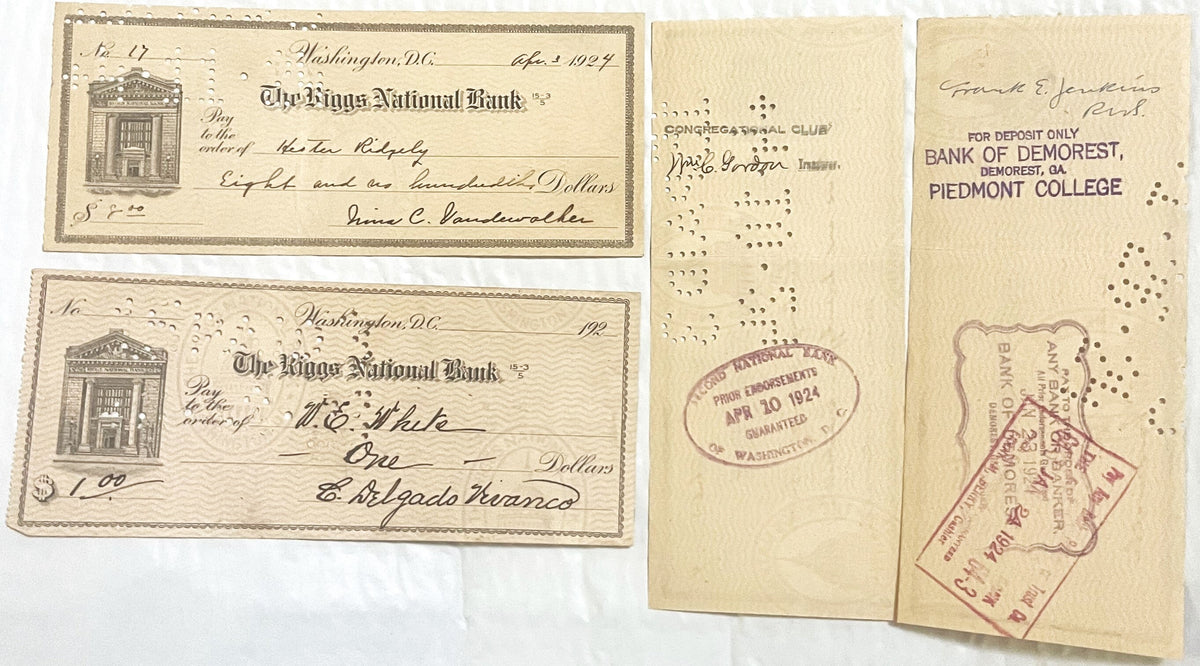 No. 17 Washington, D.C. Apr. 3 1924
The Riggs National Bank 15-3
5
Pay
to the
order of Hester Ridgely
Eight and no hundredths Dollars
$ 8.00 Nina C. Vandewalker
No. Washington, D.C. 192
The Riggs National Bank 15-3
5
Pay
to the
order of W. E. White
— One — Dollars
$ 1.00 E. Delgado Vivanco
CONGREGATIONAL CLUB
Wm C. Gordon Treasurer.
SECOND NATIONAL BANK
PRIOR ENDORSEMENTS
APR 10 1924
GUARANTEED
OF WASHINGTON, D. C.
Frank E. Jenkins
Pres.
FOR DEPOSIT ONLY
BANK OF DEMOREST,
DEMOREST, GA.
PIEDMONT COLLEGE
ANY BANK OR BANKER
JAN 23 1924
BANK OF DEMOREST
DEMOREST
Cashier
24 1924
64-3